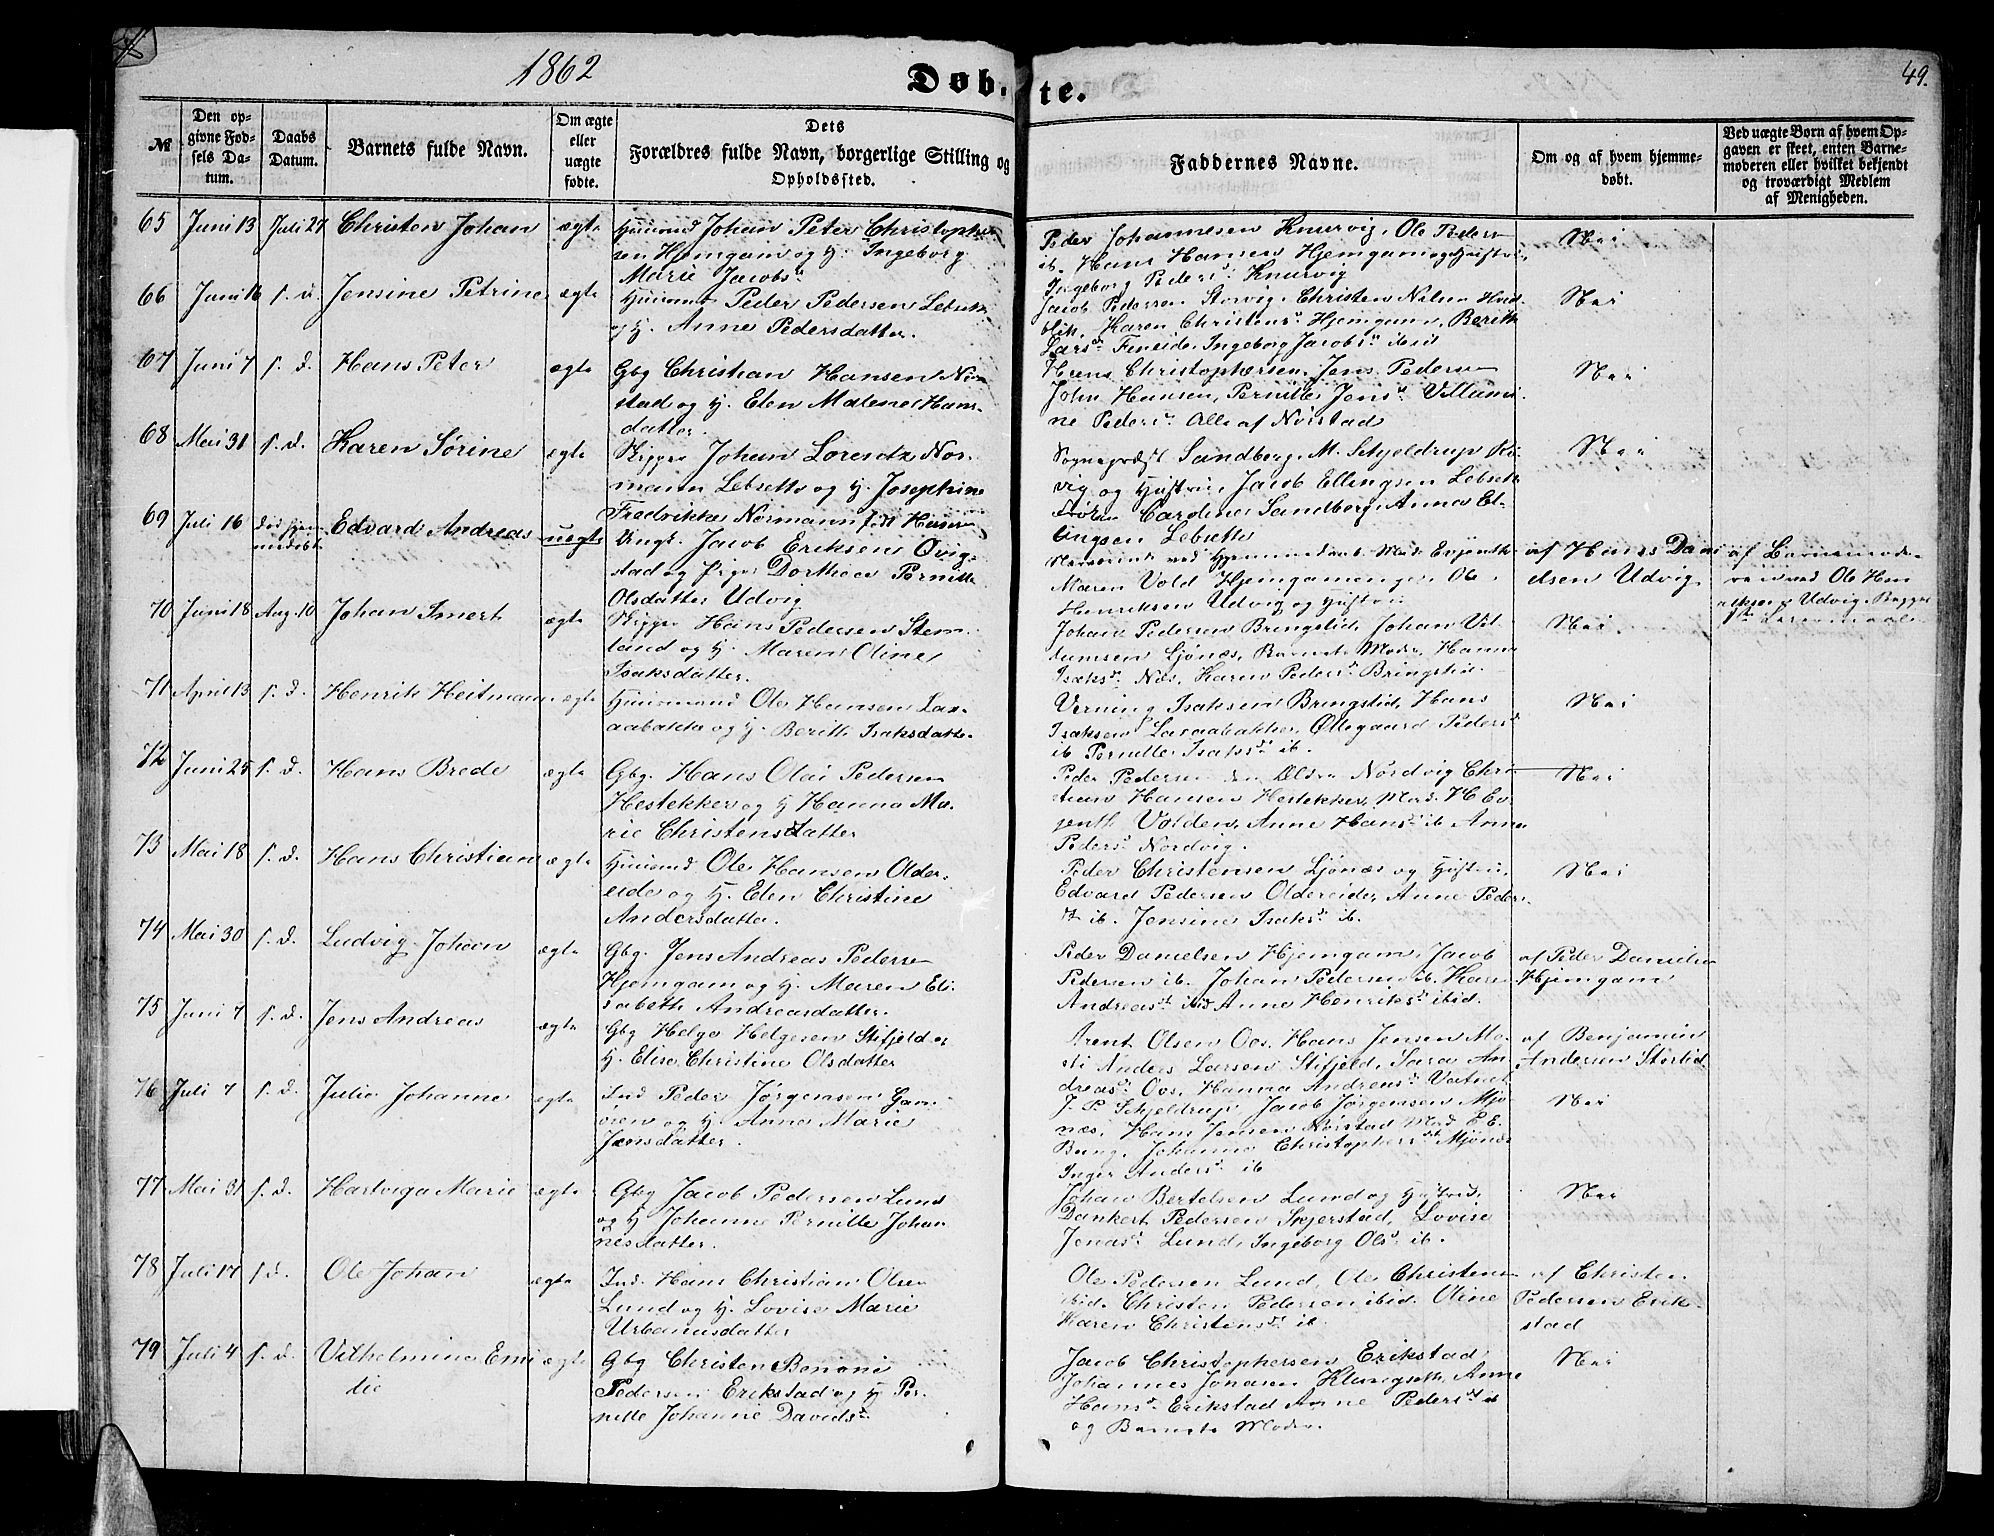 1862
Døbte.
49.
№
Den opgivne Fødsels Datum.
Daabs Datum.
Barnets fulde Navn.
Om ægte eller uægte fødte.
Dets Forældres fulde Navn, borgerlige Stilling og Opholdssted.
Faddernes Navne.
Om og af hvem hjemmedøbt.
Ved uægte Børn af hvem Opgaven er skeet, enten Barnemoderen eller hvilket bekjendt og troværdigt Medlem af Menigheden.
65 Juni 13 Juli 27 Christen Johan ægte
Huusmd Johan Peter Christopher
sen Hjemgam og H. Ingeborg
Marie Jacobsd
Peder Johannesen Knurvig, Ole Peders
ib. Hans Hansen Hjemgam og Hustru,
Ingeborg Pedersd Knurvig
Nei
66 Juni 16 s. d. Jensine Petrine ægte
Huusmd Peder Pedersen Lebsette
og H. Anne Pedersdatter.
Jacob Pedersen Storvig, Christen Nilsen Hvid
blik, Karen Christensd Hjemgam, Berith
Larsd Feneide, Ingeborg Jacobsd ibid
Nei
67 Juni 7 s. d. Hans Peter ægte
Gbg Christian Hansen Nor
stad og H. Elen Malene Hans
datter.
Christophersen, Jens Peders
John Hansen, Pernille Jensd Villumi
ne Pedersd Alle af Norstad
Nei
68 Mai 31 s. d. Karen Sørine ægte
Skipper Johan Lorentz Nor
mann Lebsette og H. Josephine
Fredrikke Normann født Hansen
Sognepræst Sandberg, M. Schjeldrup
vig og Hustru, Jacob Ellingsen Lebsette
Frøken Cardine Sandberg, Anna El
lingsen Lebsette
Nei
69 Juli 16 Edvard Andreas uægte
Ungk. Jacob Eriksen Qvig
stad og Pige Dorthea Pernille
Olsdatter Udvig
Maren Vold Hjemgamengen Ole
Henriksen Udvig og Hustru
af Hans Dani
elsen Udvig
af Barnemode
ren ved Ole Hen
riksen Udvig
70 Juni 18 Aug. 10 Johan Imert ægte
Skipper Hans Pedersen Stem
land og H. Maren Oline
Isaksdatter.
Johan Pedersen Bringslid, Johan Vil
lumsen Ljønæs, Barnets Moder, Hanna
Isaksd Næs, Karen Pedersd Bringslid
Nei
71 April 13 s. d. Henrik Heitmann ægte
Huusmand Ole Hansen Lax
aabakke og H. Berith Isaksdatter
Verning Isaksen Bringslid, Hans
Isaksen Laxaabakke, Ollegaard Pedersd
ib Pernille Isaksd ib.
Nei
72 Juni 25 s. d. Hans Brede ægte
Gbg. Hans Olai Pedersen
Hestekker og H Hanna Ma
rie Christensdatter
Peder Pedersen den Ældre Nordvig Chri
stian Hansen Hestekker, Mad. H Ev
jenth Volden, Anne Hansd ib Anne
Pedersd Nordvig.
Nei
73 Mai 18 s. d. Hans Christian ægte
Huusmd Ole Hansen Older
eide og H. Elen Christine
Andersdatter.
Peder Christensen Ljønæs og Hustru,
Edvard Pedersen Oldereide, Anne Peder
sd ib. Jensine Isaksd ib.
Nei
74 Mai 30 s. d. Ludvig Johan ægte
Gbg. Jens Andreas Pederse
Hjemgam og H. Maren Eli
sabeth Andreasdatter.
Peder Danielsen Hjemgam, Jacob
Pedersen ib. Johan Pedersen ib. Karen
Andreasd ibid Anne Henriksd ibid.
af Peder Danielsen
Hjemgam
75 Juni 7 s. d. Jens Andreas ægte
Gbg Helge Helgesen Stifjeld og
H. Elise Christine Olsdatter
Arent Olsen Oos, Hans Jensen Mo
sti Anders Larsen Stifjeld, Sara An
dreasd Oos, Hanna Andreasd Vatnet
af Benjamin
Andersen Storlid
76 Juli 7 s. d. Julie Johanne ægte
Ind Peder Jørgensen Gam
øien og H. Anna Marie
Jensdatter.
J. P. Schjeldrup, Jacob Jørgensen Mjø
næs, Hans Jensen Norstad Mad E. E.
Bang, Johanne Christophersd Mjønæs
Inger Andersd ib
Nei
77 Mai 31 s. d. Hartviga Marie ægte
Gbg Jacob Pedersen Lund
og H Johanne Pernille Johan
nesdatter.
Johan Bertelsen Lund og Hustru,
Dankert Pedersen Skjerstad, Lovise
Jonasd Lund, Ingeborg Olsd ib.
Nei
78 Juli 17 s. d. Ole Johan ægte
Ind. Hans Christian Olsen
Lund og H. Lovise Marie
Urbanusdatter
Ole Pedersen Lund, Ole Christens
ibid. Christen Pedersen ibid. Oline
Karen Christensd ib.
af Christen
Pedersen Erik
stad
79 Juli 4 s. d. Vilhelmine Emi ægte
lie
Gbg Christen Benoni
Pedersen Erikstad og H Per
nille Johanne Davidsd
Jacob Christophersen Erikstad
Johannes Jonasen Klungseth, Anne
Hansd Erikstad Anne Pedersd ib
og Barnets Moder.
Nei